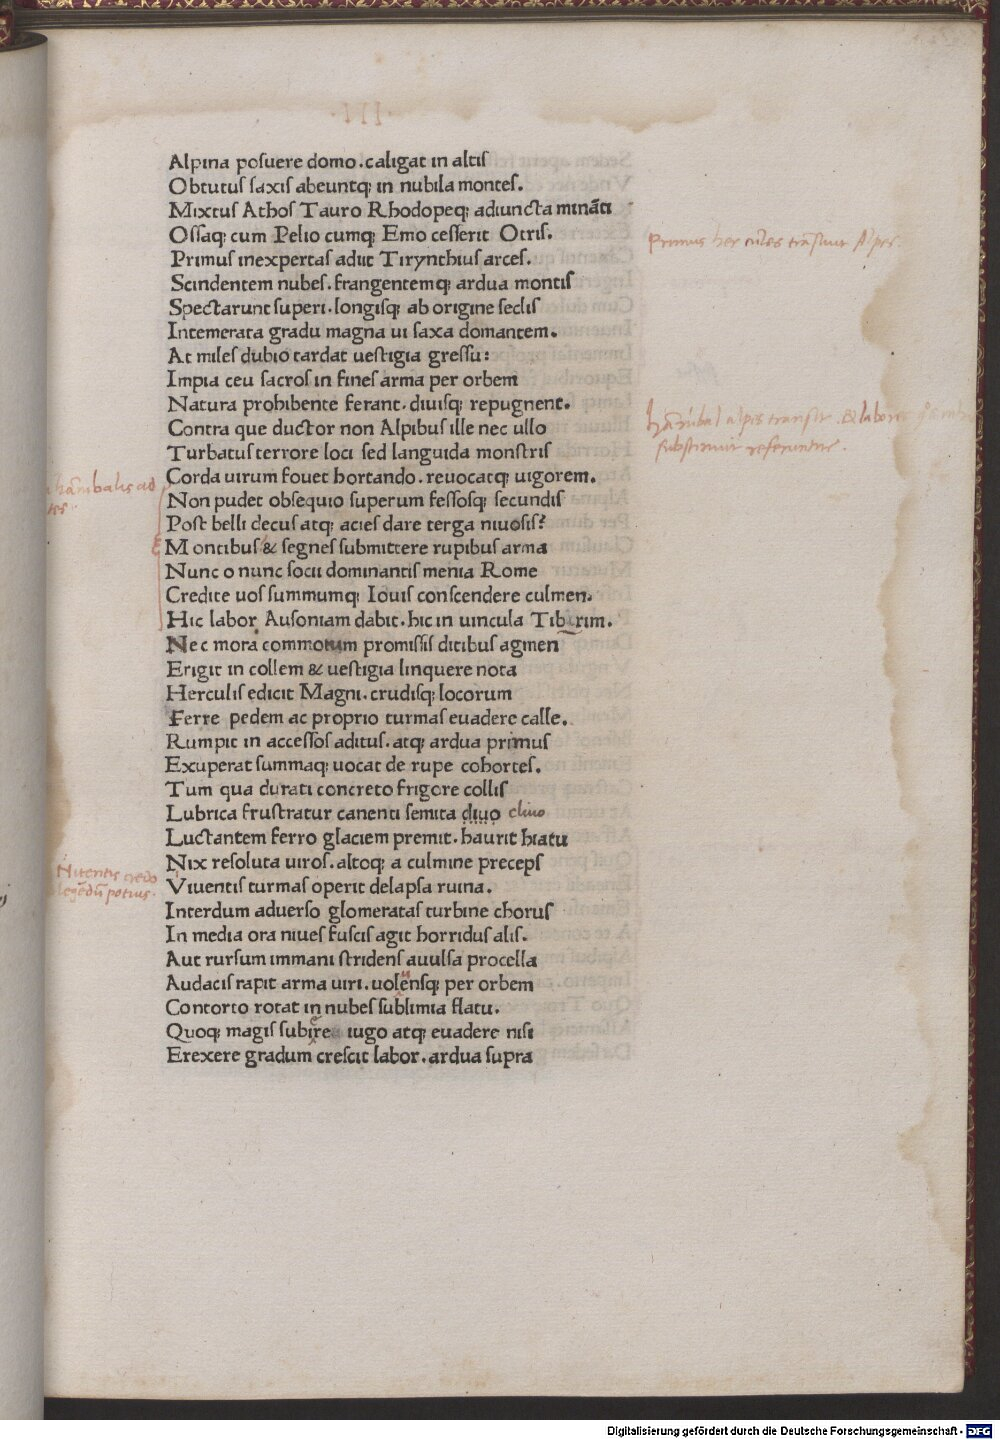 .III.
Alpina posuere domo. caligat in altis
Obtutus saxis abeuntq; in nubila montes.
Mixtus Athos Tauro Rhodopeq; adiuncta minãti
Ossaq; cum Pelio cumq; Emo cesserit Otris.
Primus inexpertas adiit Tirynthius arces.
Scindentem nubes. frangentemq; ardua montis
Spectarunt superi. longisq; ab origine seclis
Intemerata gradu magna ui saxa domantem.
At miles dubio tardat uestigia gressu:
Impia ceu sacros in fines arma per orbem
Natura prohibente ferant. diuisq; repugnent.
Contra que ductor non Alpibus ille nec ullo
Turbatus terrore loci sed languida monstris
Corda uirum fouet hortando. reuocatq; uigorem.
Non pudet obsequio superum fessosq; secundis
Post belli decus atq; acies dare terga niuosis?
Montibus & segnes submittere rupibus arma
Nunc o nunc socii dominantis menia Rome
Credite uos summumq; Iouis conscendere culmen.
Hic labor Ausoniam dabit. hic in uincula Tibrim.
Nec mora commotum promissis ditibus agmen
Erigit in collem & uestigia linquere nota
Herculis edicit Magni. crudisq; locorum
Ferre pedem ac proprio turmas euadere calle.
Rumpit in accessos aditus. atq; ardua primus
Exuperat summaq; uocat de rupe cohortes.
Tum qua durati concreto frigore collis
Lubrica frustratur canenti semita diuo cliuo
Luctantem ferro glaciem premit. haurit hiatu
Nix resoluta uiros. altoq; a culmine preceps
Viuentis turmas operit delapsa ruina.
Interdum aduerso glomeratas turbine chorus
In media ora niues fuscis agit horridus alis.
Aut rursum immani stridens auulsa procella
Audacis rapit arma uiri. uolensq; per orbem
Contorto rotat in nubes sublimia flatu.
Quoq; magis subire iugo atq; euadere nisi
Erexere gradum crescit labor. ardua supra
Primus hercules trãsiuit Alpes.
hãnibal alpes transit. & labores
substinuit referuntur.
hãnibalis ad
Nitentis credo
legẽdũ potius.
Digitalisierung gefördert durch die Deutsche Forschungsgemeinschaft - DFG